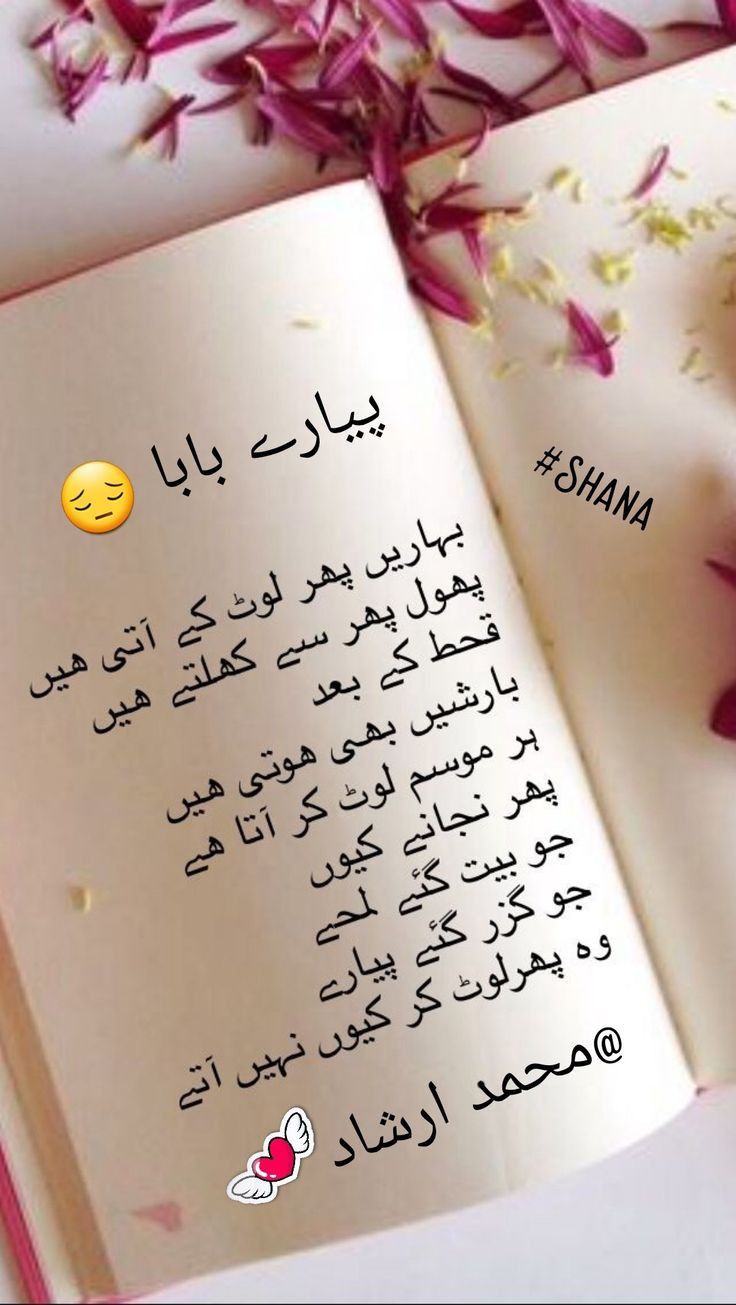 پیارے بابا 😔
#SHANA
بہاریں پھر لوٹ کے آتی ھیں
پھول پھر سے کھلتے ھیں
قحط کے بعد
بارشیں بھی ھوتی ھیں
ہر موسم لوٹ کر آتا ھے
پھر نجانے کیوں
جو بیت گئے لمحے
جو گزر گئے پیارے
وہ پھرلوٹ کر کیوں نہیں آتے
@محمد ارشاد